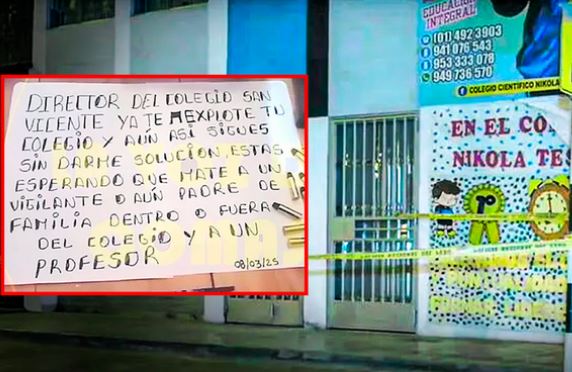 EDUCACIÓN
INTEGRAL
(01) 492 3903
941 076 543
953 333 078
949 736 570
COLEGIO CIENTIFICO NIKOLA
EN EL CO
NIKOLA TES
DIRECTOR DEL COLEGIO SAN
VICENTE YA TE EXPLOTE TU
COLEGIO Y AÚN ASI SIGUES
SIN DARME SOLUCIÓN, ESTAS
ESPERANDO QUE MATE A UN
VIGILANTE O AÚN PADRE DE
FAMILIA DENTRO O FUERA
DEL COLEGIO Y A UN
PROFESOR
08/03/25